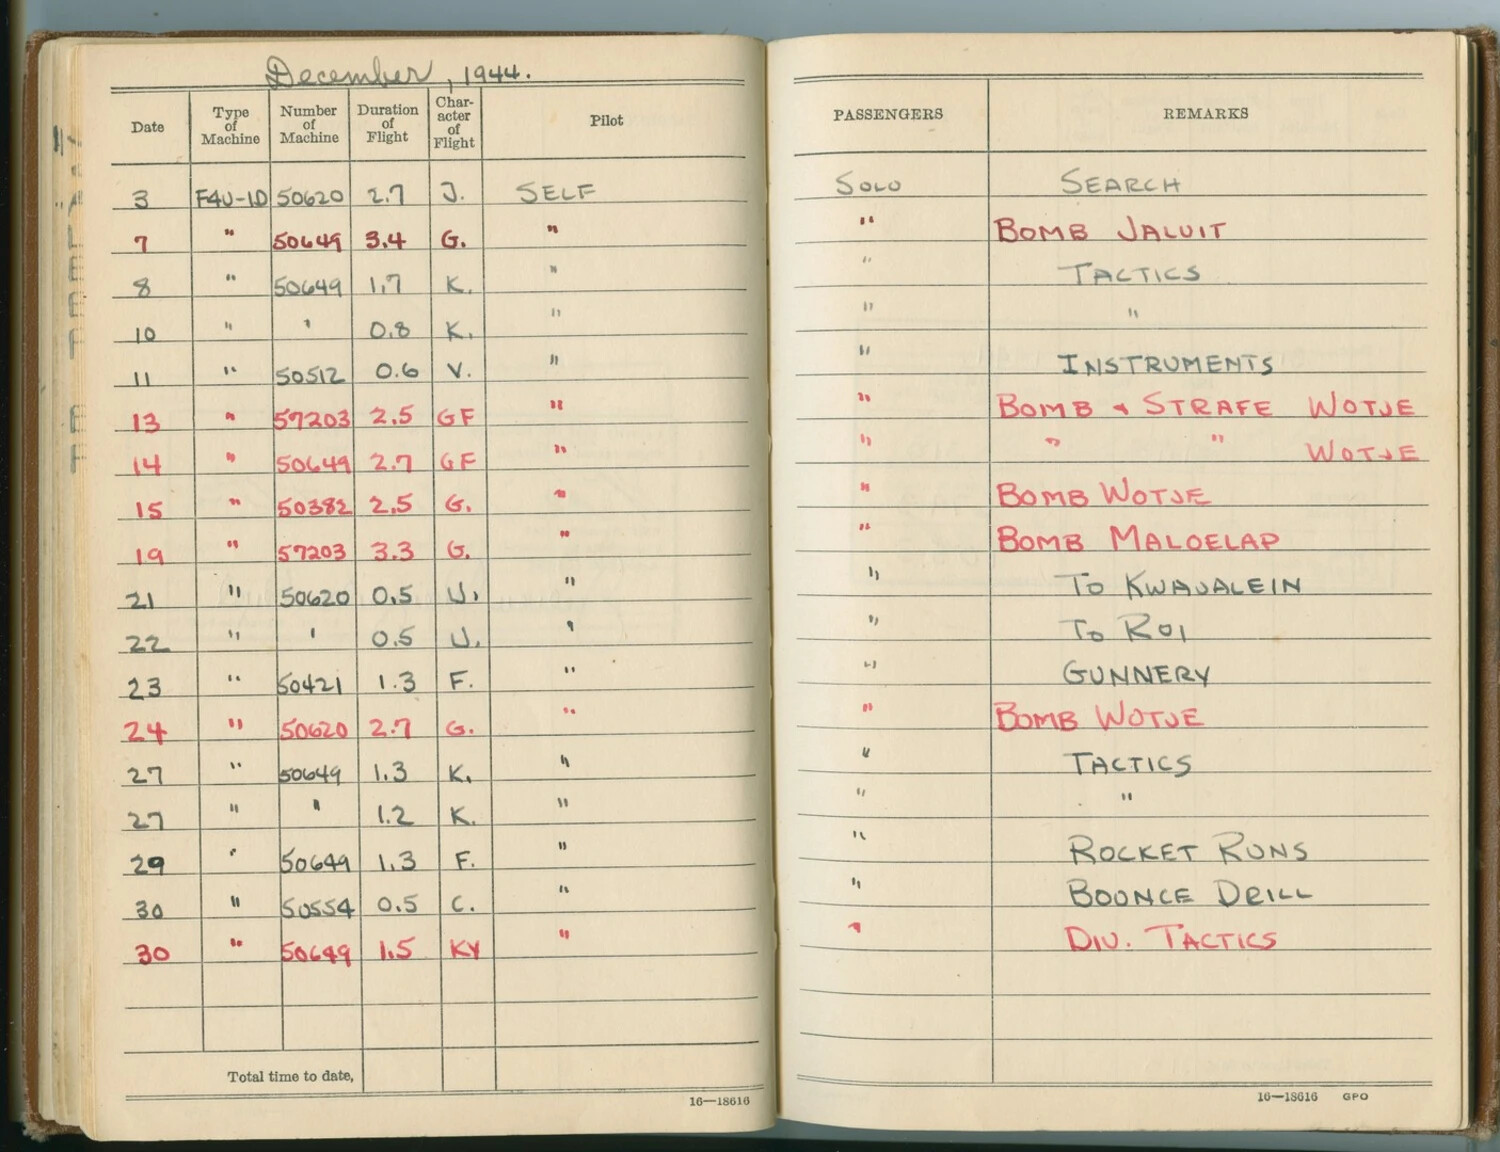 December, 1944.
Date Type of Machine Number of Machine Duration of Flight Char-acter of Flight Pilot PASSENGERS REMARKS
3 F4U-1D 50620 2.7 J. SELF SOLO SEARCH
7 " 50649 3.4 G. " " BOMB JALUIT
8 " 50649 1.7 K. " " TACTICS
10 " " 0.8 K. " " "
11 " 50512 0.6 V. " " INSTRUMENTS
13 " 57203 2.5 GF " " BOMB & STRAFE WOTJE
14 " 50649 2.7 GF " " " " WOTJE
15 " 50382 2.5 G. " " BOMB WOTJE
19 " 57203 3.3 G. " " BOMB MALOELAP
21 " 50620 0.5 J. " " TO KWAJALEIN
22 " " 0.5 J. " " TO ROI
23 " 50421 1.3 F. " " GUNNERY
24 " 50620 2.7 G. " " BOMB WOTJE
27 " 50649 1.3 K. " " TACTICS
27 " " 1.2 K. " " "
29 " 50649 1.3 F. " " ROCKET RUNS
30 " 50554 0.5 C. " " BOUNCE DRILL
30 " 50649 1.5 KY " " DIV. TACTICS
Total time to date,
16—18616
16—18616 GPO